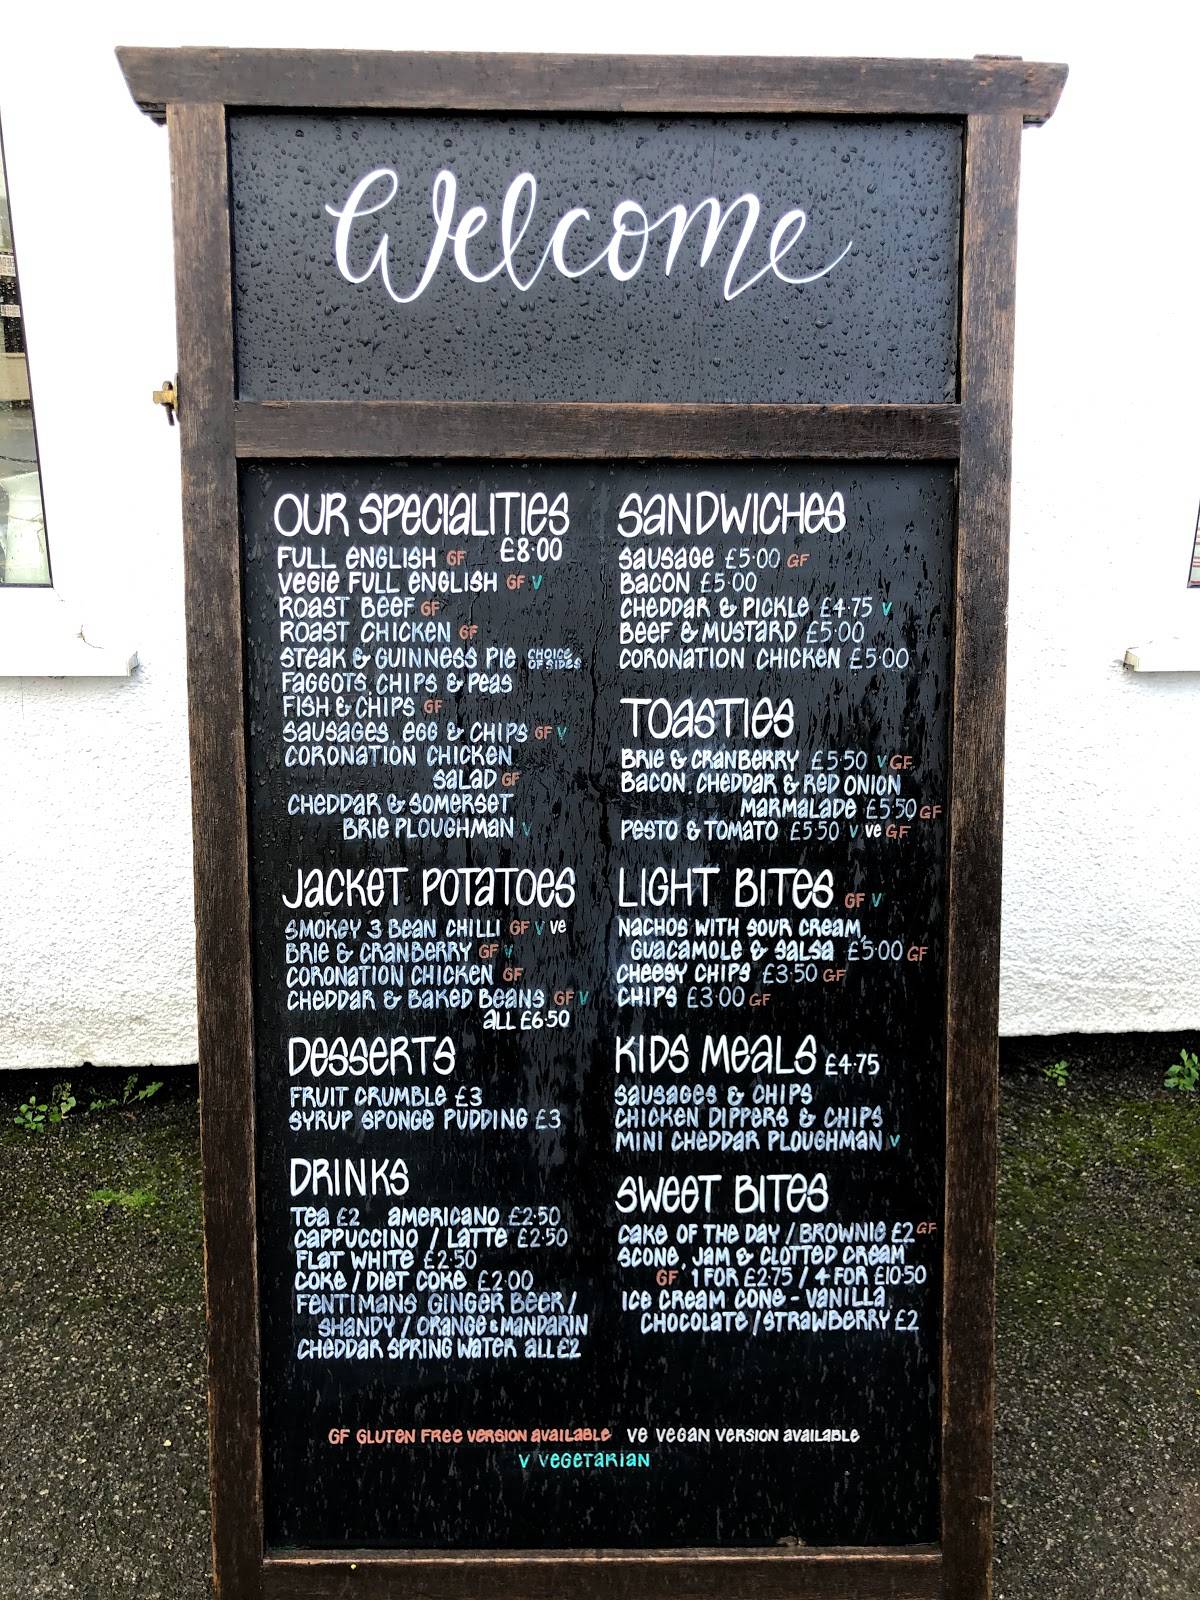 Welcome
OUR SPECIALITIES
£8.00
FULL ENGLISH GF
VEGIE FULL ENGLISH GF V
ROAST BEEF GF
ROAST CHICKEN GF
STEAK & GUINNESS PIE CHOICE OF SIDES
FAGGOTS, CHIPS & PEAS
FISH & CHIPS GF
SAUSAGES, EGG & CHIPS GF V
CORONATION CHICKEN
SALAD GF
CHEDDAR & SOMERSET
BRIE PLOUGHMAN V
JACKET POTATOES
SMOKEY 3 BEAN CHILLI GF V VE
BRIE & CRANBERRY GF V
CORONATION CHICKEN GF
CHEDDAR & BAKED BEANS GF V
ALL £6.50
DESSERTS
FRUIT CRUMBLE £3
SYRUP SPONGE PUDDING £3
DRINKS
TEA £2 AMERICANO £2.50
CAPPUCCINO / LATTE £2.50
FLAT WHITE £2.50
COKE / DIET COKE £2.00
FENTIMANS GINGER BEER /
SHANDY / ORANGE & MANDARIN
CHEDDAR SPRING WATER ALL £2
SANDWICHES
SAUSAGE £5.00 GF
BACON £5.00
CHEDDAR & PICKLE £4.75 V
BEEF & MUSTARD £5.00
CORONATION CHICKEN £5.00
TOASTIES
BRIE & CRANBERRY £5.50 V GF
BACON, CHEDDAR & RED ONION
MARMALADE £5.50 GF
PESTO & TOMATO £5.50 V VE GF
LIGHT BITES GF V
NACHOS WITH SOUR CREAM,
GUACAMOLE & SALSA £5.00 GF
CHEESY CHIPS £3.50 GF
CHIPS £3.00 GF
KIDS MEALS £4.75
SAUSAGES & CHIPS
CHICKEN DIPPERS & CHIPS
MINI CHEDDAR PLOUGHMAN V
SWEET BITES
CAKE OF THE DAY / BROWNIE £2 GF
SCONE, JAM & CLOTTED CREAM
GF 1 FOR £2.75 / 4 FOR £10.50
ICE CREAM CONE - VANILLA
CHOCOLATE / STRAWBERRY £2
GF GLUTEN FREE VERSION AVAILABLE VE VEGAN VERSION AVAILABLE
V VEGETARIAN